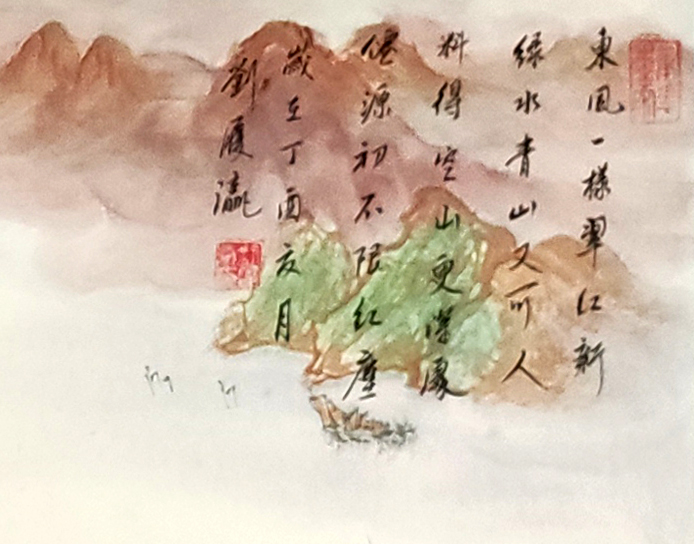 東風一樣翠紅新
綠水青山又可人
料得空山更深處
僊源初不限紅塵
歲在丁酉亥月
劉履瀛